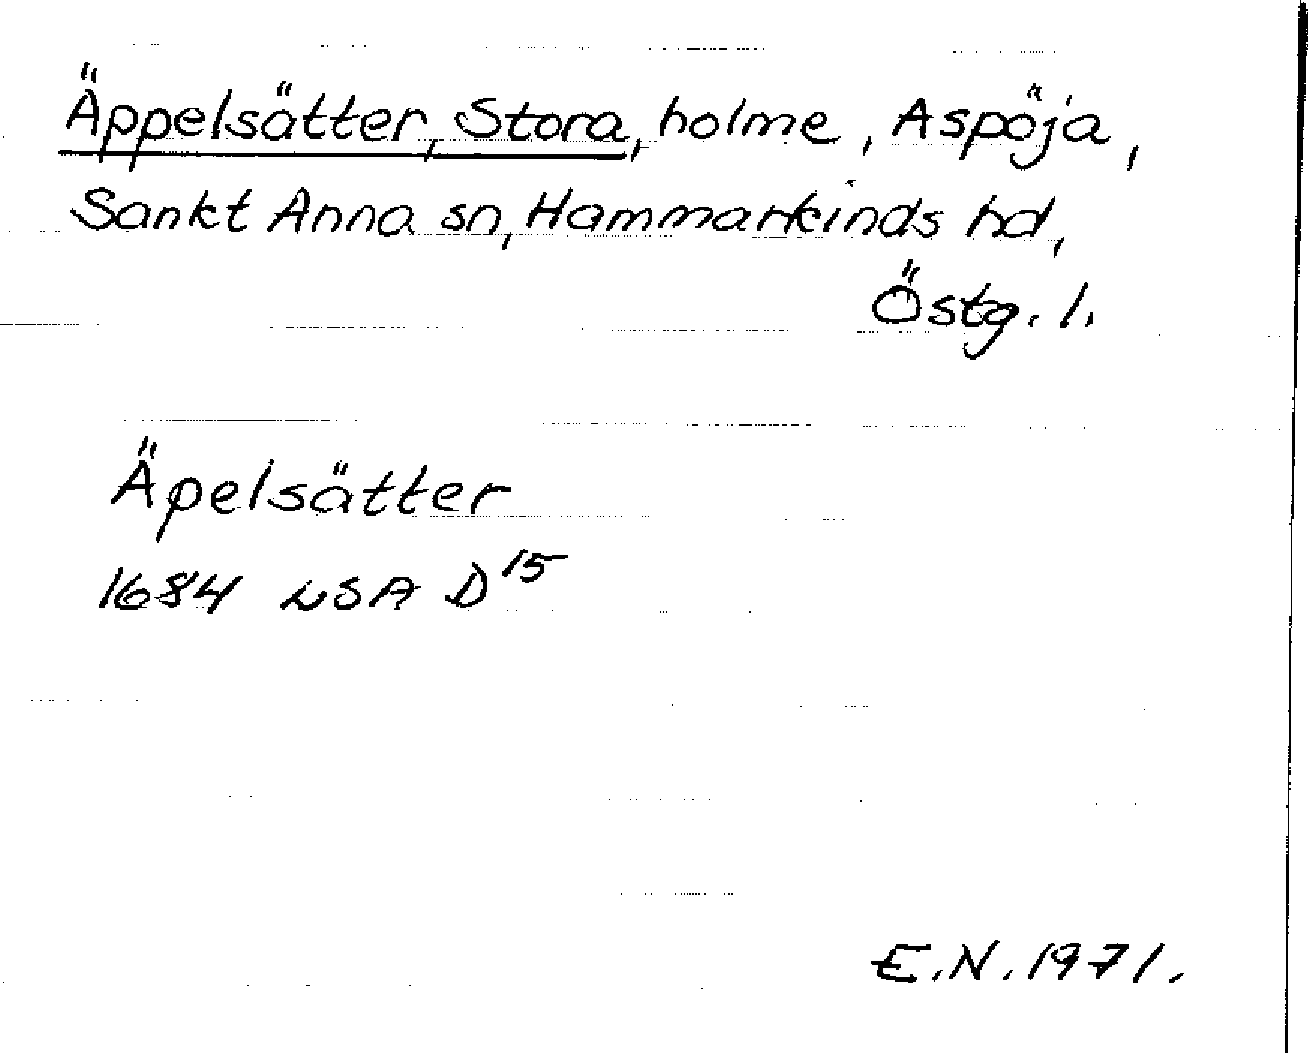 Äppelsätter, Stora, holme, Aspöja,
Sankt Anna sn, Hammarkinds hd,
Östg. l.
Äpelsätter
1684 LSA D¹⁵
E.N. 1971.